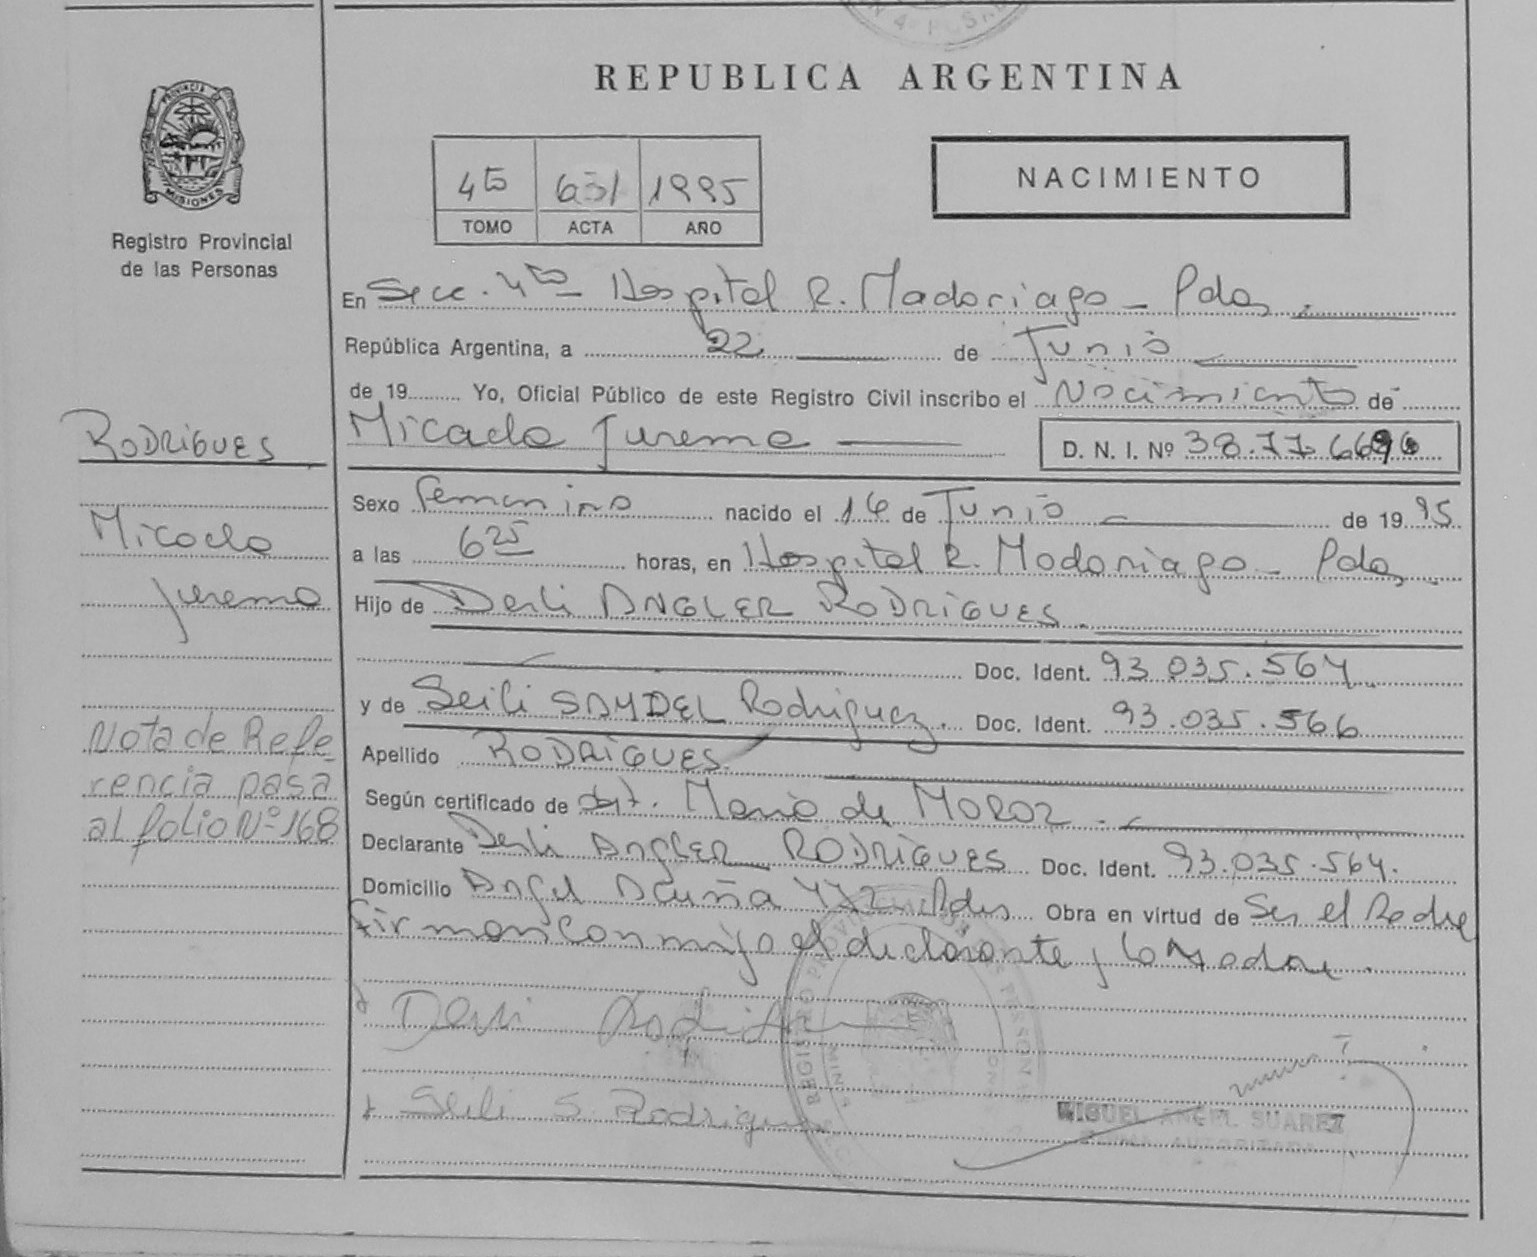 REPUBLICA ARGENTINA
PROVINCIA DE
MISIONES
Registro Provincial
de las Personas
4to 631 1995
TOMO ACTA AÑO
NACIMIENTO
En Secc. 4ta Hospital R. Madariaga - Pdas
República Argentina, a 22 de Junio
de 19 Yo, Oficial Público de este Registro Civil inscribo el Nacimiento de
Micaela Jurema D. N. I. Nº 38.776696
Sexo Femenino nacido el 16 de Junio de 19 95
a las 625 horas, en Hospital R. Madariaga - Pdas
Hijo de Derli ANGLER RODRIGUES
Doc. Ident. 93.035.564
y de Seili SAYDEL Rodriguez. Doc. Ident. 93.035.566
Apellido RODRIGUES
Según certificado de obst. Maria de MOROZ
Declarante Derli ANGLER RODRIGUES Doc. Ident. 93.035.564.
Domicilio Angel Acuña Pdas Obra en virtud de Ser el Padre
firman conmigo el declarante y la Madre.
Derli Rodrigues
Seili S. Rodriguez
MIGUEL ANGEL SUAREZ
FIRMA AUTORIZADA
RODRIGUES
Micaela
Jurema
Nota de Refe-
rencia pasa
al folio Nº 168